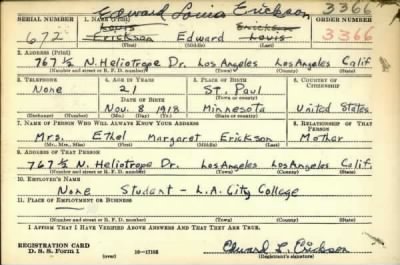 Edward Louis Erickson 3366
SERIAL NUMBER 1. NAME (Print) ORDER NUMBER
672 Louis Erickson 3366
Erickson Edward Louis
(First) (Middle) (Last)
2. ADDRESS (Print)
767 1/2 N. Heliotrope Dr. Los Angeles Los Angeles Calif.
(Number and street or R. F. D. number) (Town) (County) (State)
3. TELEPHONE 4. AGE IN YEARS 5. PLACE OF BIRTH 6. COUNTRY OF CITIZENSHIP
None 21 St. Paul
DATE OF BIRTH (Town or county)
Nov. 8 1918 Minnesota United States
(Exchange) (Number) (Mo.) (Day) (Yr.) (State or country)
7. NAME OF PERSON WHO WILL ALWAYS KNOW YOUR ADDRESS 8. RELATIONSHIP OF THAT PERSON
Mrs. Ethel Margaret Erickson Mother
(Mr., Mrs., Miss) (First) (Middle) (Last)
9. ADDRESS OF THAT PERSON
767 1/2 N. Heliotrope Dr. Los Angeles Los Angeles Calif.
(Number and street or R. F. D. number) (Town) (County) (State)
10. EMPLOYER'S NAME
None Student - L.A. City College
11. PLACE OF EMPLOYMENT OR BUSINESS
(Number and street or R. F. D. number) (Town) (County) (State)
I AFFIRM THAT I HAVE VERIFIED ABOVE ANSWERS AND THAT THEY ARE TRUE.
REGISTRATION CARD
D. S. S. Form 1 (over) 16—17105 Edward L. Erickson
(Registrant's signature)